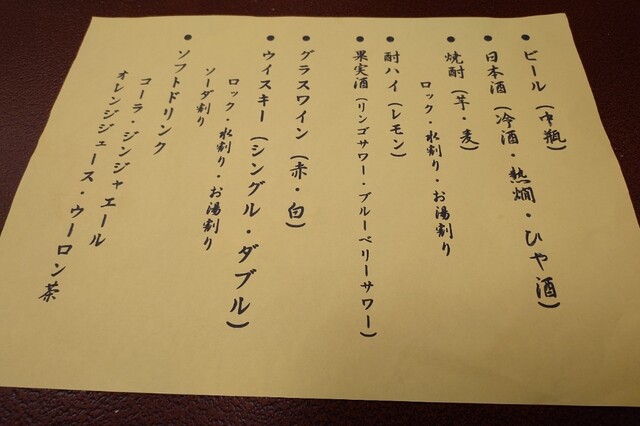 ●ビール（中瓶）
●日本酒（冷酒・熱燗・ひや酒）
●焼酎（芋・麦）
ロック・水割り・お湯割り
●酎ハイ（レモン）
●果実酒（リンゴサワー・ブルーベリーサワー）
●グラスワイン（赤・白）
●ウイスキー（シングル・ダブル）
ロック・水割り・お湯割り
ソーダ割り
●ソフトドリンク
コーラ・ジンジャエール
オレンジジュース・ウーロン茶